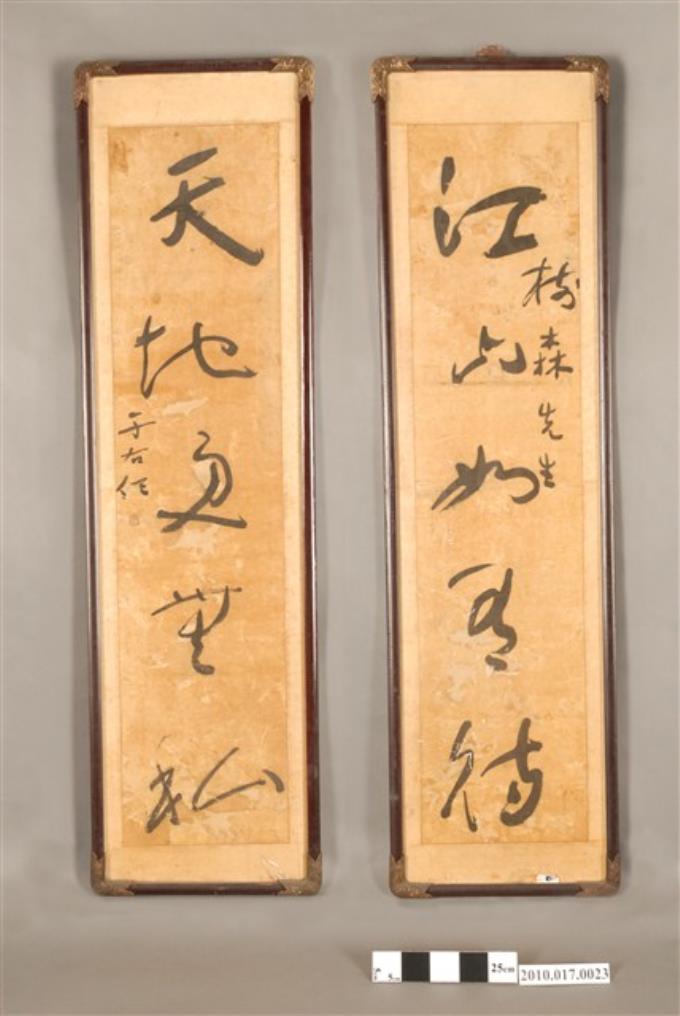 江山如有待
樹森先生
天地更無私
于右任
5cm
25cm
2010.017.0023